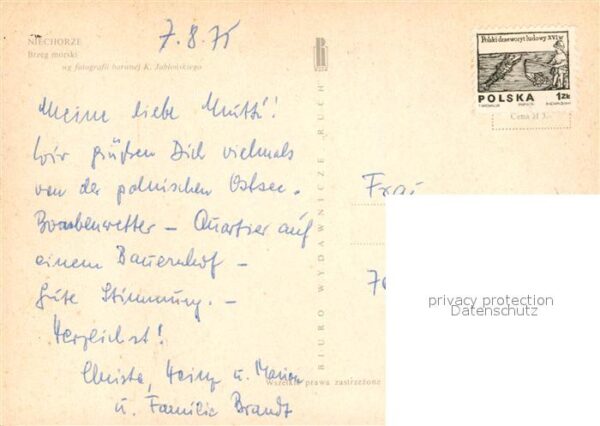 NIECHORZE
Brzeg morski
wg fotografii barwnej K. Jabłońskiego
7.8.75
Meine liebe Mutti!
Wir grüßen Dich vielmals
von der polnischen Ostsee.
Bombenwetter – Quartier auf
einem Bauernhof –
Gute Stimmung. –
Herzlichst!
Christa, Heinz u. Marion
u. Familie Brandt
BIURO WYDAWNICZE „RUCH”
Wszelkie prawa zastrzeżone
Polski drzeworyt ludowy XVI w.
POLSKA 1 ZŁ
Cena zł
Frau
7
privacy protection
Datenschutz